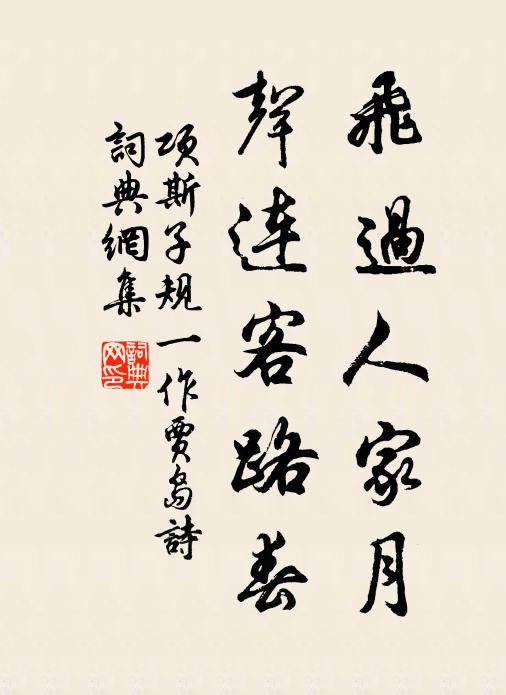 飛過人家月
聲連客路春
項斯子規一作賈島詩
詞典網集
詞典
网印